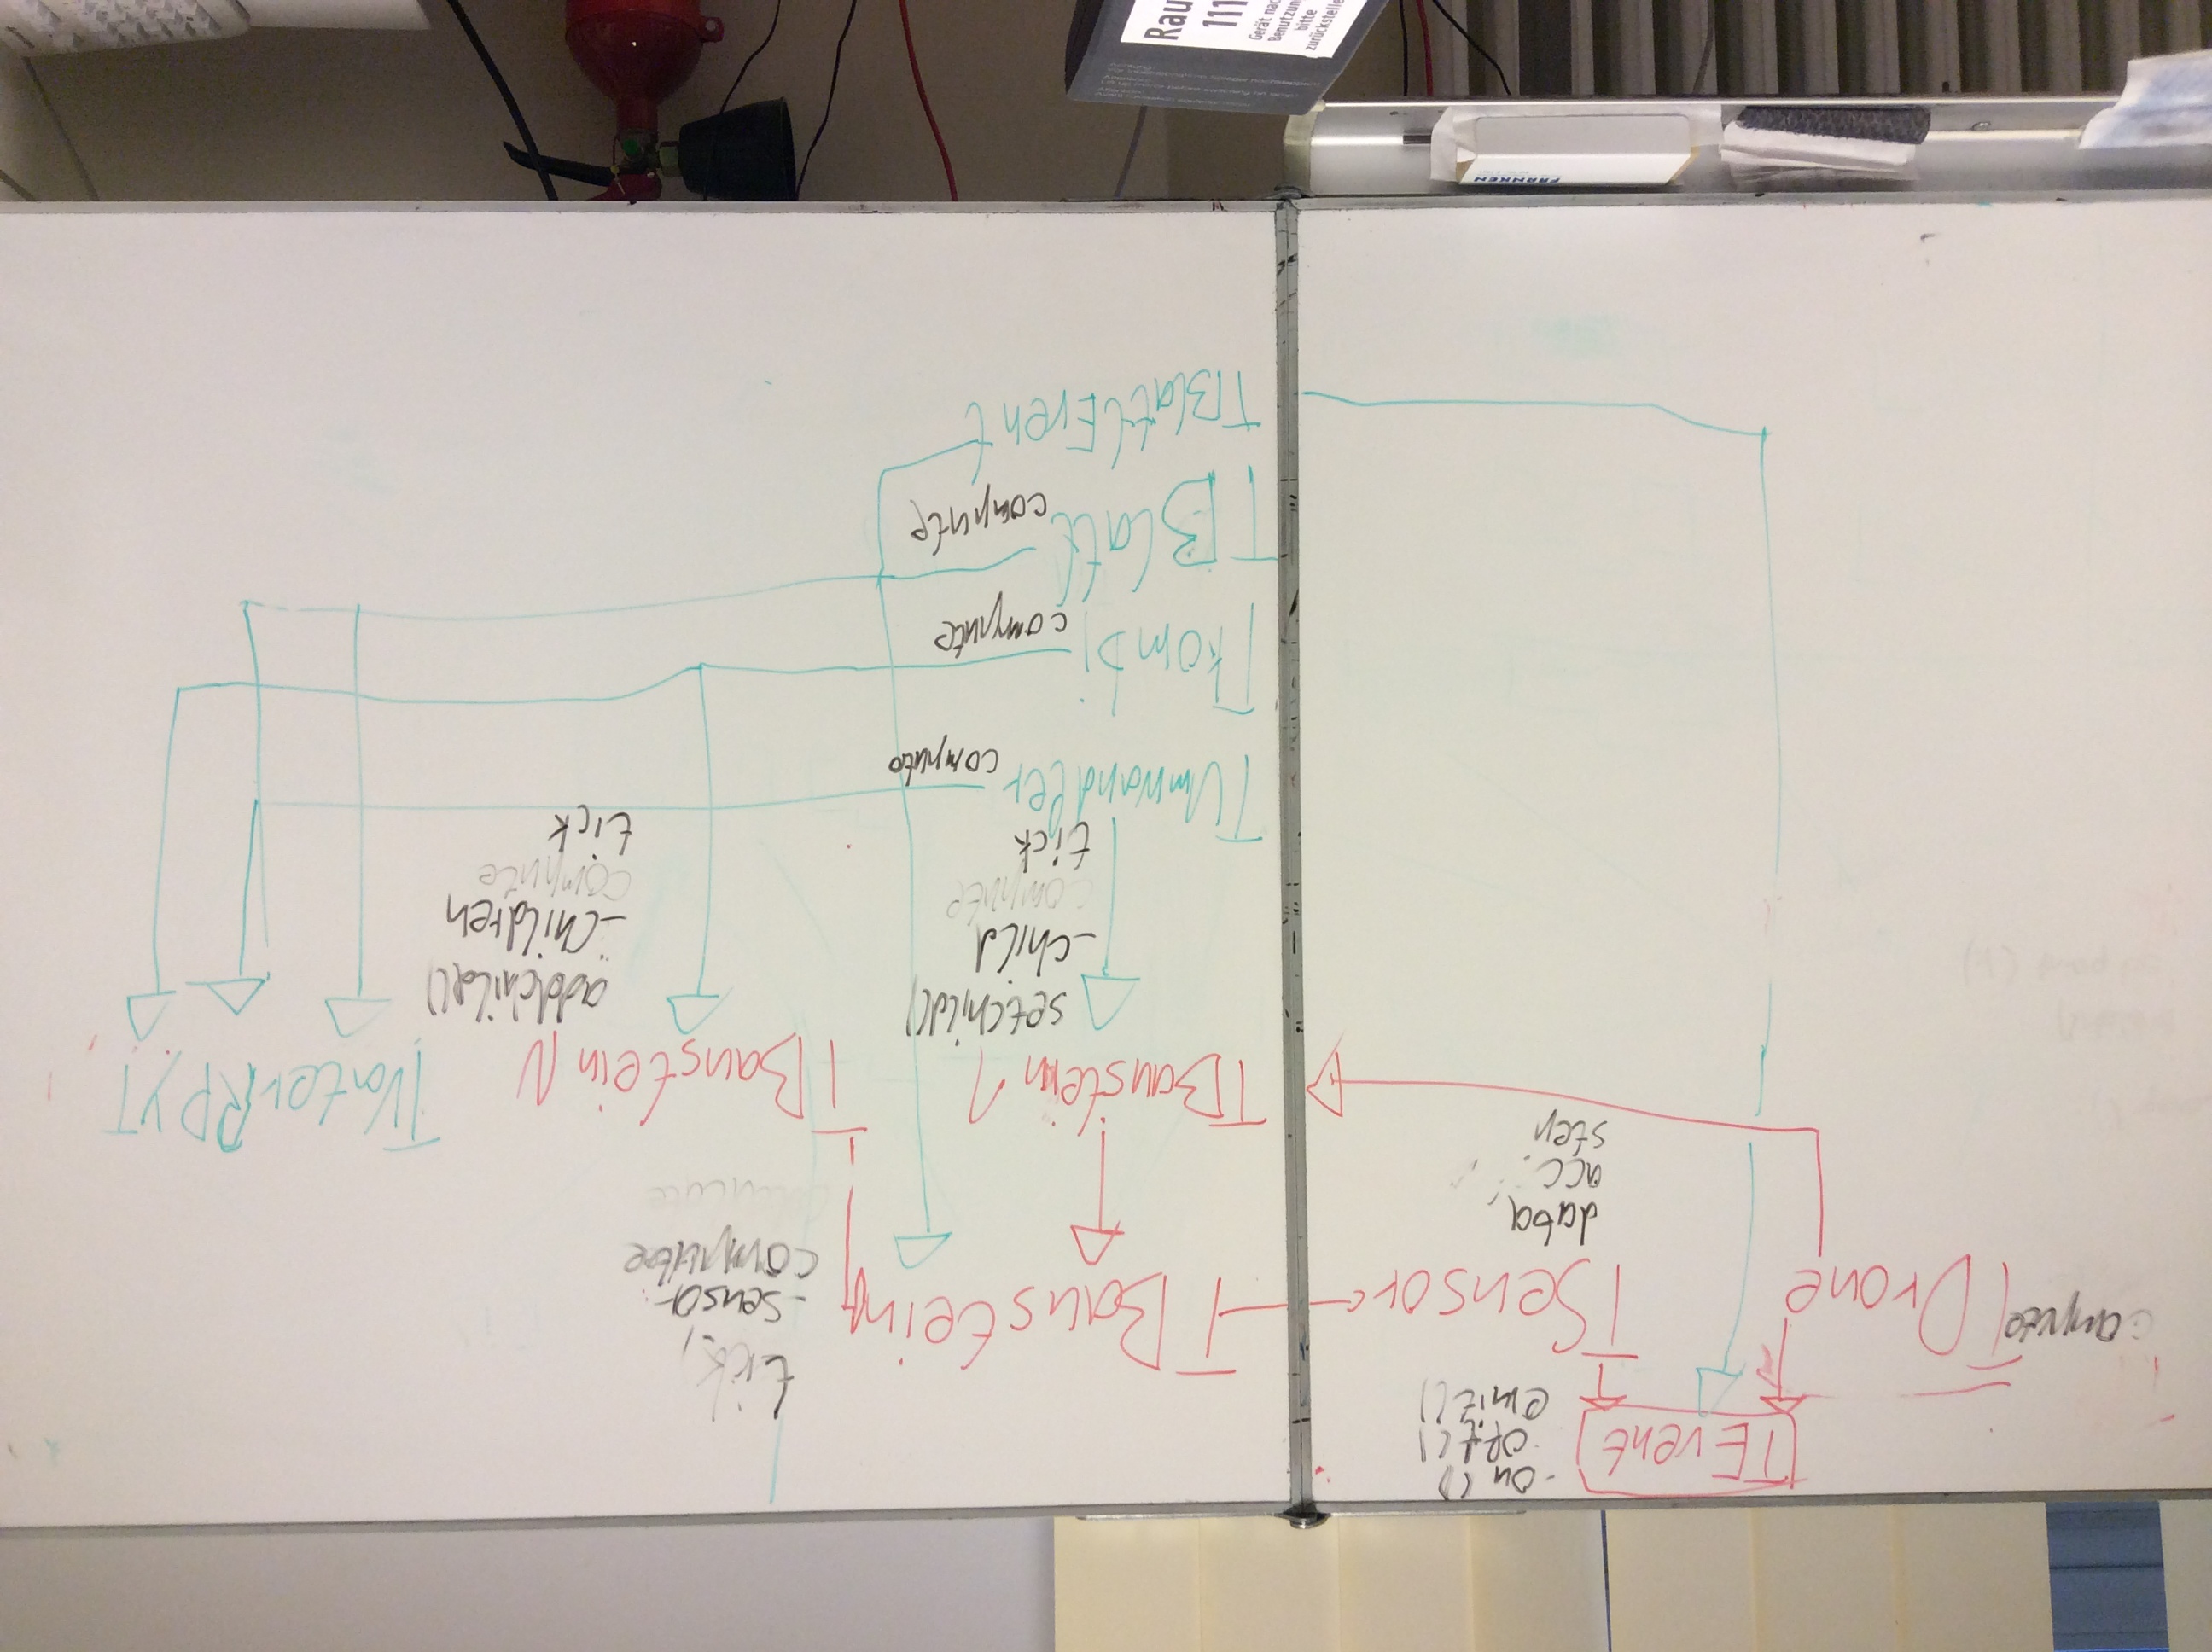 TEvent
-on()
off()
emit()
compute
TDrone
TSensor
data,
acc
step
TBaustein
tick,
-sensor
compute
TBaustein 1
setChild()
-child
compute
tick
TBaustein N
addchild()
-Children
compute
tick
TVaterRPYT
TUmwandler
compute
TKombi
compute
TBlatt
compute
TBlattEvent
FRANKEN
Rau
111
Gerät nac
Benutzun
bitte
zurückstelle